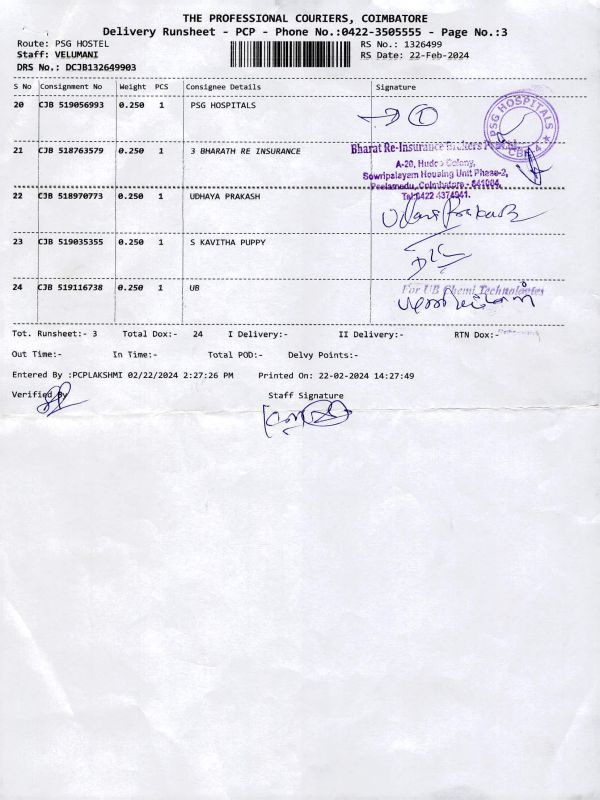 THE PROFESSIONAL COURIERS, COIMBATORE
Delivery Runsheet - PCP - Phone No.:0422-3505555 - Page No.:3
Route: PSG HOSTEL
RS No.: 1326499
Staff: VELUMANI
RS Date: 22-Feb-2024
DRS No.: DCJB132649903
S No Consignment No Weight PCS Consignee Details Signature
20 CJB 519056993 0.250 1 PSG HOSPITALS
1
PSG HOSPITALS
21 CJB 518763579 0.250 1 3 BHARATH RE INSURANCE
Bharat Re-Insurance Brokers
A-20, Hudco Colony,
Sowripalayam Housing Unit Phase-2,
Peelamedu, Coimbatore - 641004.
Tel:0422 4374941.
22 CJB 518970773 0.250 1 UDHAYA PRAKASH
23 CJB 519035355 0.250 1 S KAVITHA PUPPY
24 CJB 519116738 0.250 1 UB
For UB Chemi Technologies
Tot. Runsheet:- 3 Total Dox:- 24 I Delivery:- II Delivery:- RTN Dox:-
Out Time:- In Time:- Total POD:- Delvy Points:-
Entered By :PCPLAKSHMI 02/22/2024 2:27:26 PM Printed On: 22-02-2024 14:27:49
Verified By Staff Signature